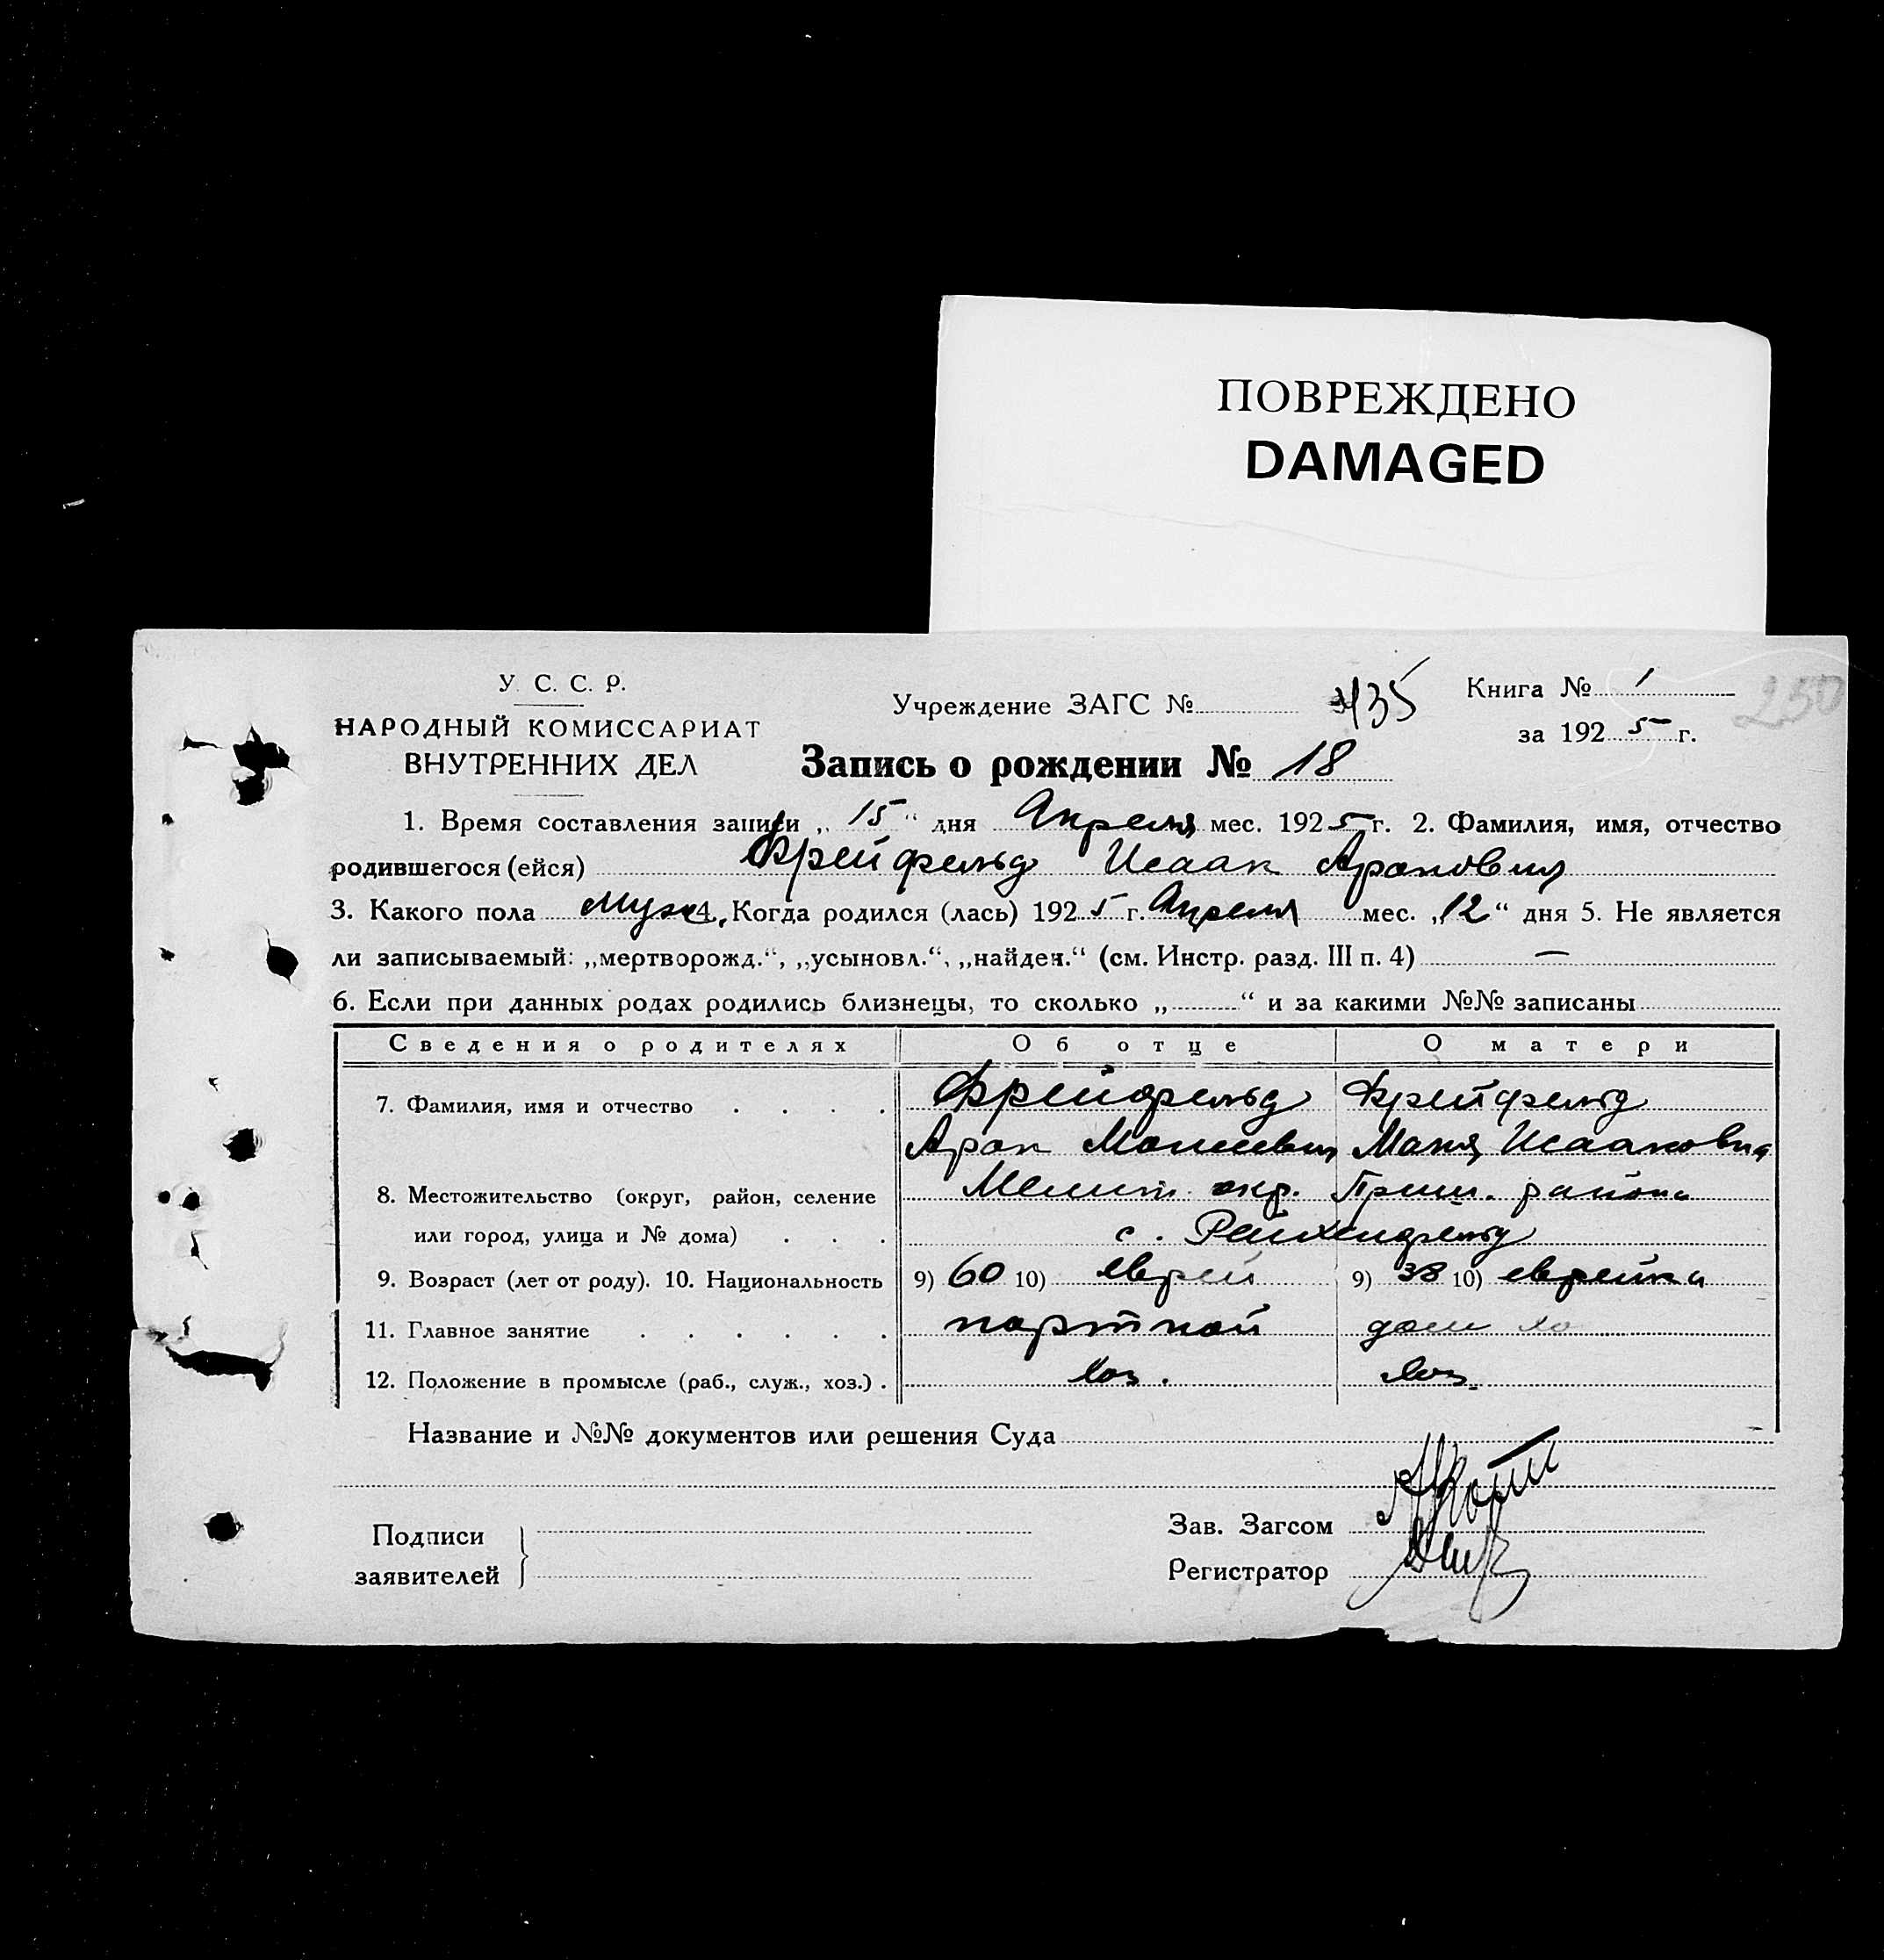 ПОВРЕЖДЕНО
DAMAGED
У. С. С. Р.
НАРОДНЫЙ КОМИССАРИАТ
ВНУТРЕННИХ ДЕЛ
Учреждение ЗАГС № 435
Книга № 1
250
за 1925 г.
Запись о рождении № 18
1. Время составления записи „15“ дня Апреля мес. 1925 г. 2. Фамилия, имя, отчество
родившегося (ейся) Фрейфельд Исаак Аронович
3. Какого пола муж 4. Когда родился (лась) 1925 г. Апреля мес. „12“ дня 5. Не является
ли записываемый: „мертворожд.“, „усыновл.“, „найден.“ (см. Инстр. разд. III п. 4) —
6. Если при данных родах родились близнецы, то сколько „ “ и за какими №№ записаны
Сведения о родителях Об отце О матери
7. Фамилия, имя и отчество Фрейфельд Фрейфельд
Арон Мошевич Маня Исааковна
8. Местожительство (округ, район, селение Мелит. окр. Приш. района
или город, улица и № дома) с. Рейхенфельд
9. Возраст (лет от роду). 10. Национальность 9) 60 10) еврей 9) 38 10) еврейка
11. Главное занятие портной дом хо
12. Положение в промысле (раб., служ., хоз.) хоз. хоз.
Название и №№ документов или решения Суда —
Подписи
заявителей
Зав. Загсом
Регистратор